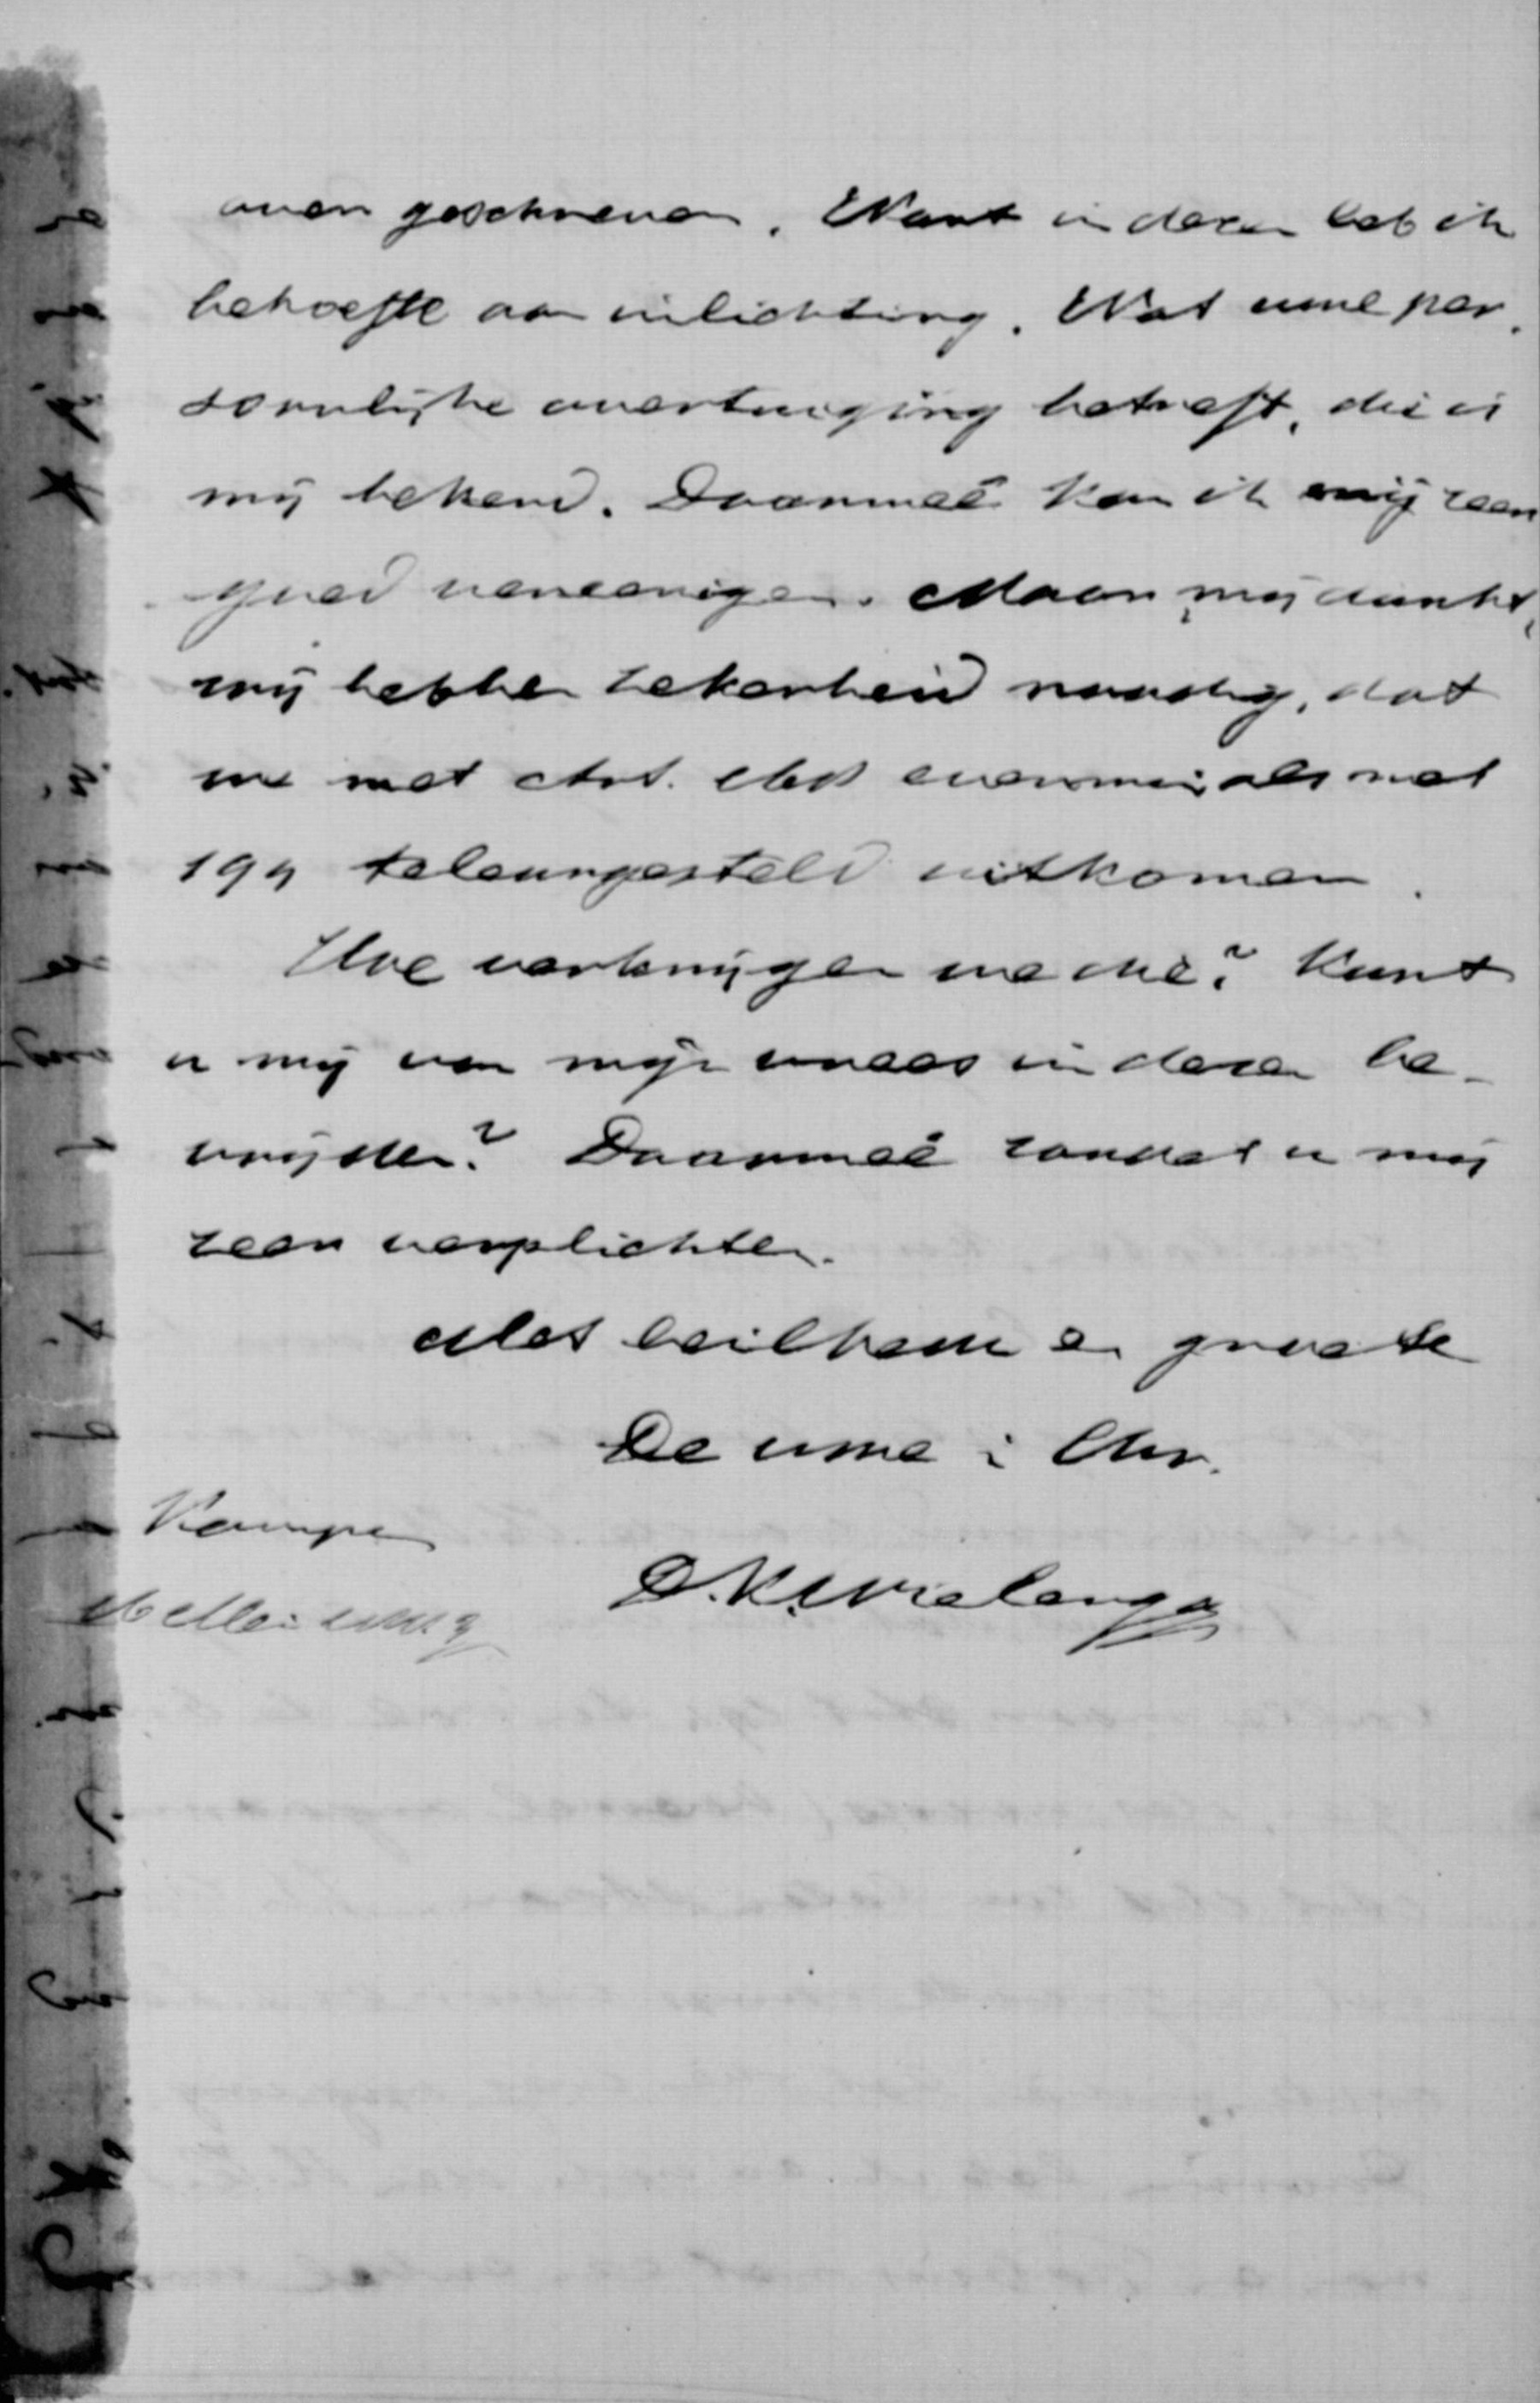 over geschreven. Want in dezen heb ik
behoefte aan inlichting. Wat uwe per-
soonlijke overtuiging betreft, die is
mij bekend. Daarmeê kan ik mij zeer
goed vereenigen. Maar, mij dunkt,
wij hebben zekerheid noodig, dat
we met Art. evenmin als met
194 teleurgesteld uitkomen.
Hoe verkrijgen we die? Kunt
u mij van mijn vrees in dezen be-
vrijden? Daarmeê zoudet u mij
zeer verplichten.
Met heilbede en groete
De uwe i Chr.
Kampen
D.K. Wielenga